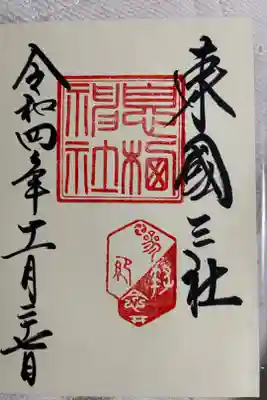 東國三社
息栖
神社
令和四年十一月